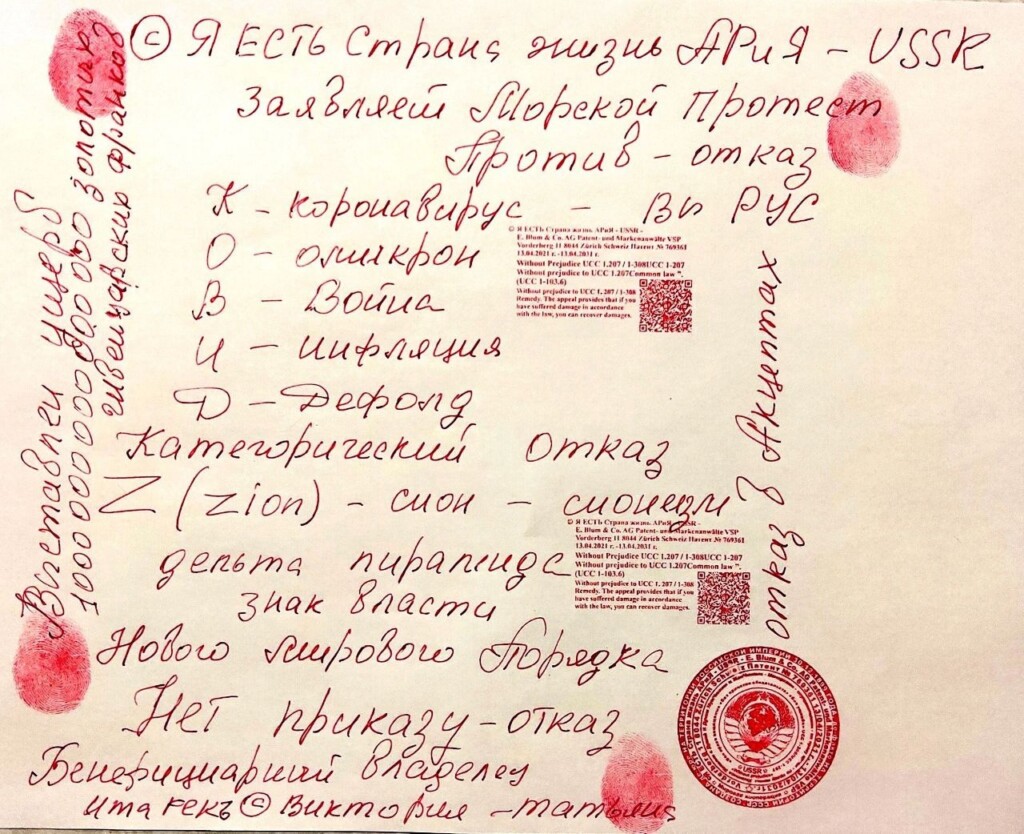 © Я ЕСТЬ Страна жизнь АРиЯ – USSR
Заявляет Морской протест
Против – отказ
К – коронавирус – Вы РУС
О – омикрон
В – Война
И – Инфляция
Д – Дефолд
Категорический отказ
Z (zion) – сион – сионезм
дельта пирамида
знак власти
Нового мирового Порядка
Нет приказу – отказ
Бенефициарный владелец
© Виктория – татьяна
Выставлен ущерб
золотых
швейцарских франков
отказ в Акцептах
© Я ЕСТЬ Страна жизнь. АРиЯ - USSR -
E. Blum & Co. AG Patent- und Markenanwälte VSP
Vorderberg 11 8044 Zürich Schweiz Патент № 769361
13.04.2021 г. -13.04.2031 г.
Without Prejudice UCC 1.207 / 1-308UCC 1-207
Without prejudice to UCC 1.207Common law ".
(UCC 1-103.6)
Without prejudice to UCC 1. 207 / 1-308
Remedy. The appeal provides that if you
have suffered damage in accordance
with the law, you can recover damages.
© Я ЕСТЬ Страна жизнь. АРиЯ -USSR -
E. Blum & Co. AG Patent- und Markenanwälte VSP
Vorderberg 11 8044 Zürich Schweiz Патент № 769361
13.04.2021 г. -13.04.2031 г.
Without Prejudice UCC 1.207 / 1-308UCC 1-207
Without prejudice to UCC 1.207Common law ".
(UCC 1-103.6)
Without prejudice to UCC 1. 207 / 1-308
Remedy. The appeal provides that if you
have suffered damage in accordance
with the law, you can recover damages.
©USSR©